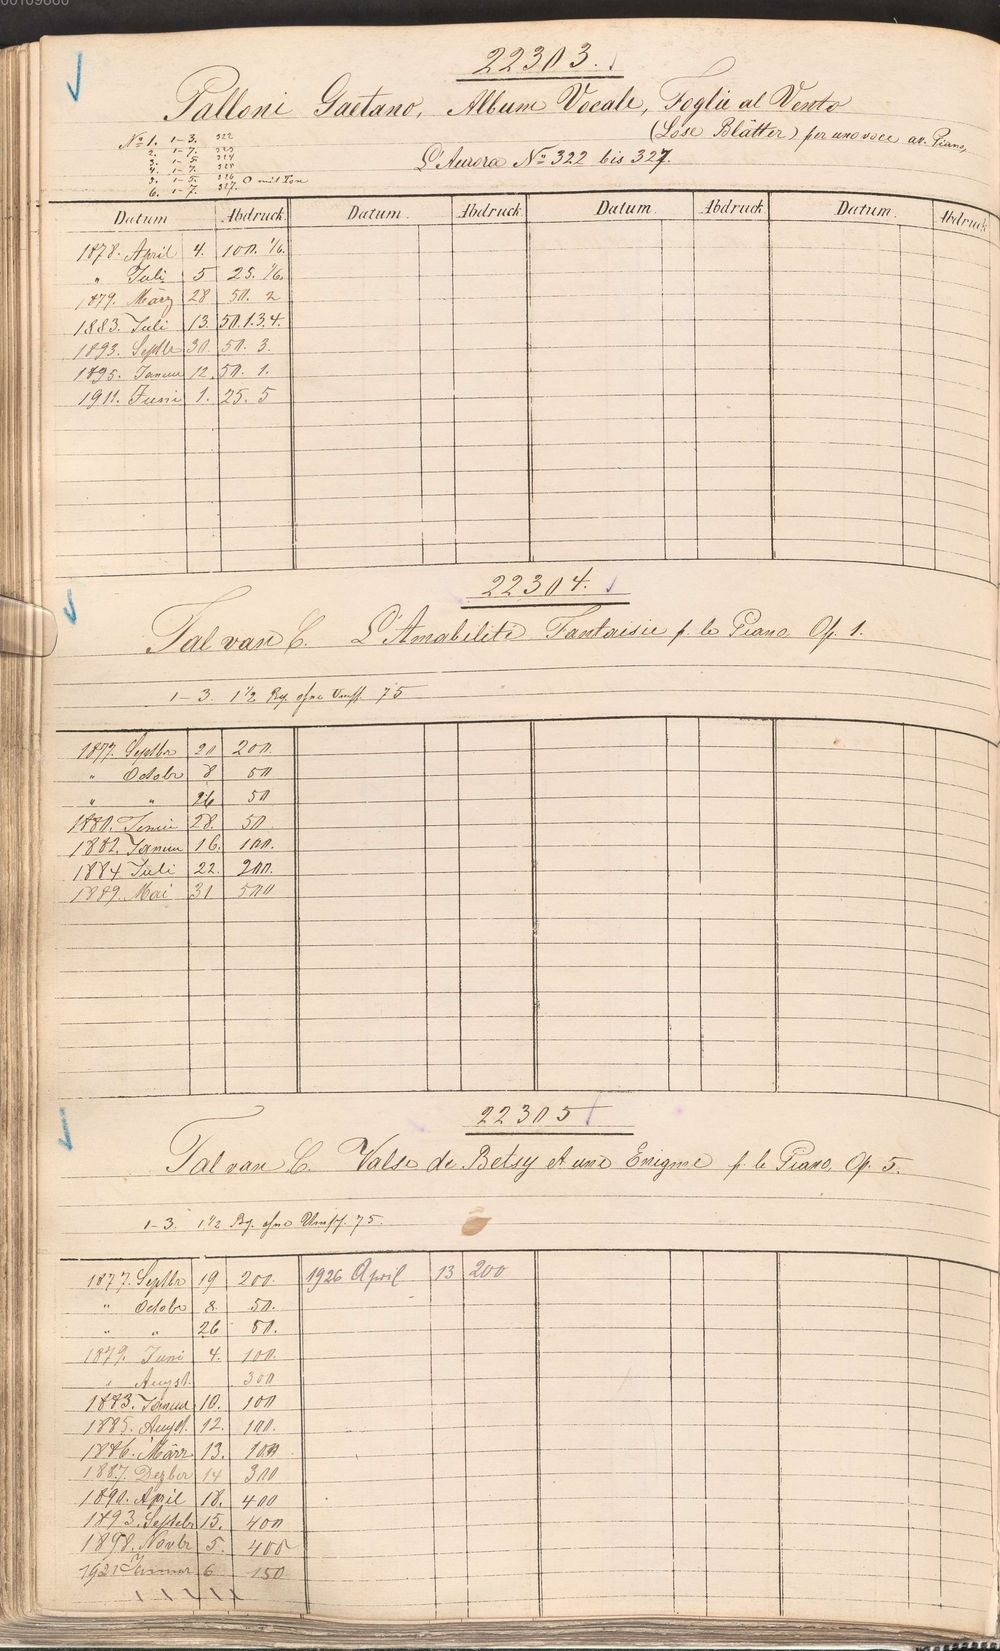 22303.
Palloni Gaetano, Album Vocale, Foglie al Vento
(Lose Blätter) per una voce av. Piano,
L'Aurora No 322 bis 327.
No 1. 1-3. 322
2. 1-7. 323
3. 1-5 324
4. 1-7. 325
5. 1-5. 326
6. 1-7. 327.
Datum Abdruck Datum. Abdruck Datum. Abdruck Datum. Abdruck
1878. April 4. 100. 1/6.
" Juli 5 25. 1/6.
1879. März 28 50. 2
1883. Juli 13. 50. 1.3.4.
1893. Septbr 30. 50. 3.
1895. Januar 12. 50. 1.
1911. Juni 1. 25. 5
22304.
Tal van C. L'Amabilité Fantaisie p. le Piano Op. 1.
1-3. 1 1/2 Bg. ohne Umschl. 75
1877. Septbr 20 200.
" Octobr 8 50
" " 26 50
1880. Juni 28. 50.
1882. Januar 16. 100.
1884 Juli 22. 200.
1889. Mai 31 500
22305
Tal van C. Valse de Betsy et une Enigme p. le Piano, Op. 5.
1-3. 1 1/2 Bg. ohne Umschl. 75.
1877. Septbr 19 200. 1926 April 13 200
" Octobr 8. 50.
" " 26 50.
1879. Juni 4. 100.
" Augst. 300
1883. Januar 10. 100
1885. Augst. 12. 100.
1886. März 13. 100
1887. Dezber 14 300
1890. April 18. 400
1893. Septebr 15. 400
1898. Novbr 5. 400
1921 Januar 6 150